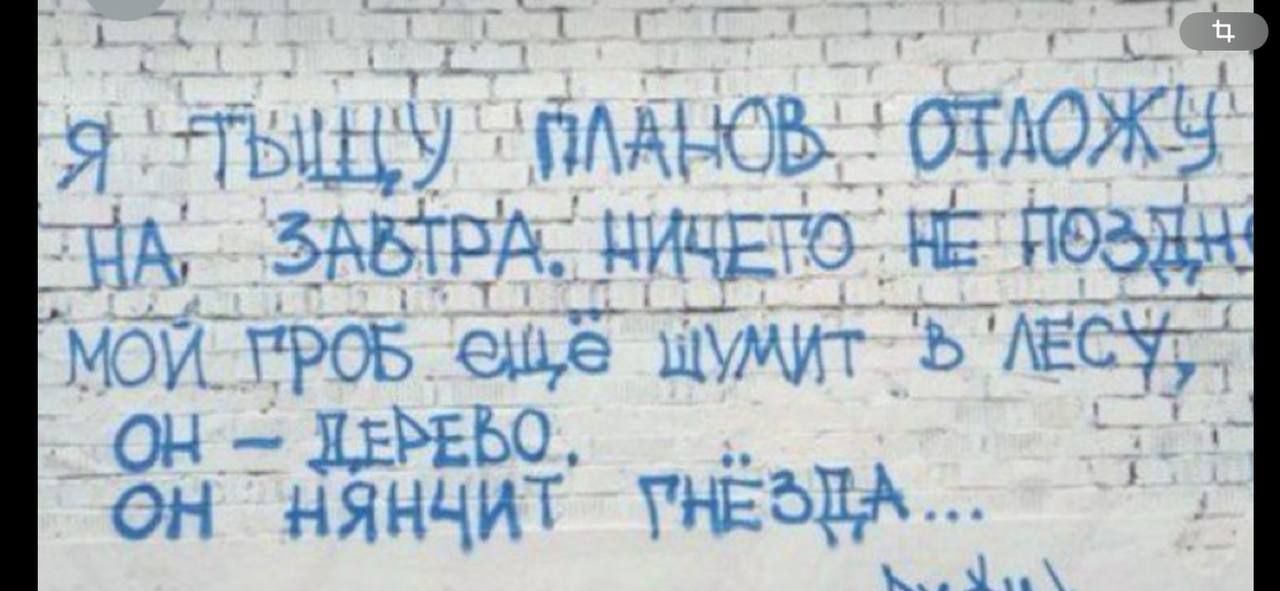 Я ТЫЩУ ПЛАНОВ ОТЛОЖУ
НА ЗАВТРА. НИЧЕГО НЕ ПОЗДНО
МОЙ ГРОБ ещё ШУМИТ В ЛЕСУ,
ОН – ДЕРЕВО.
ОН НЯНЧИТ ГНЁЗДА...